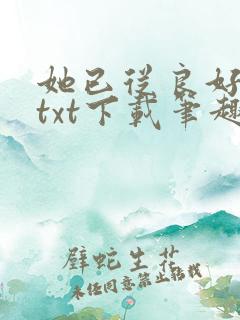 她已从良好
txt下载笔趣
壁蛇生花
未经同意禁止转载